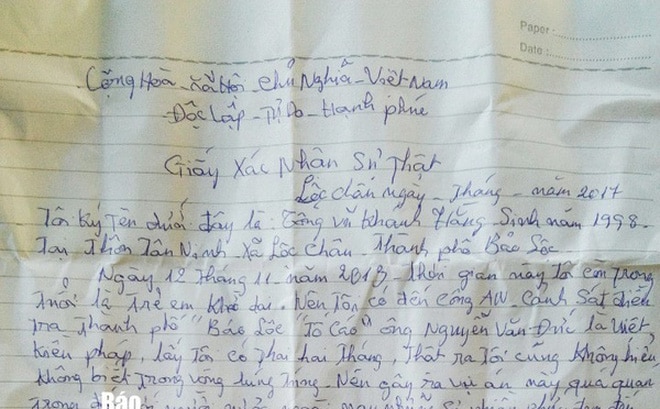 Paper :
Date :
Cộng Hoà - Xã Hội Chủ Nghĩa - Việt Nam
Độc Lập - Tự Do - Hạnh phúc
Giấy Xác Nhân Sự Thật
Lộc Chấn ngày - Tháng - năm 2017
Tôi Ký Tên dưới đây là : Tống vũ Khánh Hằng Sinh năm 1998.
Tại Thôn Tân Ninh Xã Lộc Châu. Thành phố Bảo Lộc
Ngày 12 Tháng 11 năm 2013 - Thời gian này Tôi còn Trong
Tuổi là Trẻ em Khờ dại. Nên Tôi có đến Công AN - Cảnh Sát điều
Tra Thành phố "Bảo Lộc "Tố Cáo" ông Nguyễn Văn Đức là Việt
Kiều pháp, lấy Tôi có Thai hai Tháng, Thật ra Tôi cũng Không hiểu
Không biết Trong vòng lúng Túng - Nên gây ra vụ án này qua quan
Báo